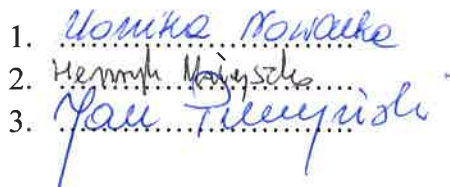 1. Monika Nowacka
2. Henryk
3. Jan